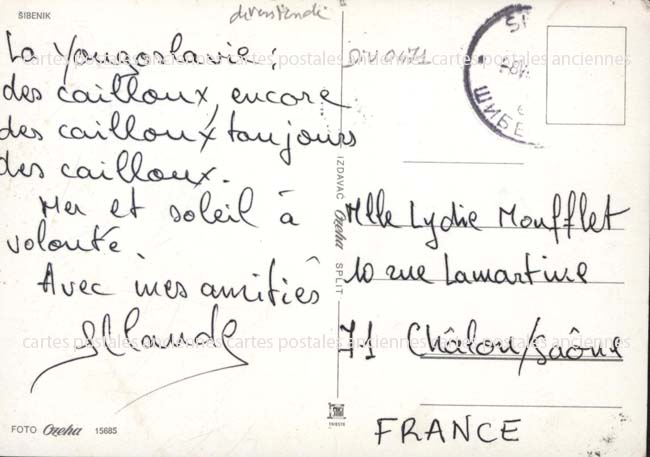 ŠIBENIK
DIV0471
La Yougoslavie :
des cailloux, encore
des cailloux, toujours
des cailloux.
Mer et soleil à
volonté.
Avec mes amitiés
Mlle Lydie Moufflet
10 rue Lamartine
71 Châlon/Saône
FRANCE
IZDAVAC Ozeha SPLIT
FOTO Ozeha 15685
cartes postales anciennes cartes postales anciennes cartes postales anciennes
cartes postales anciennes cartes postales anciennes cartes postales anciennes